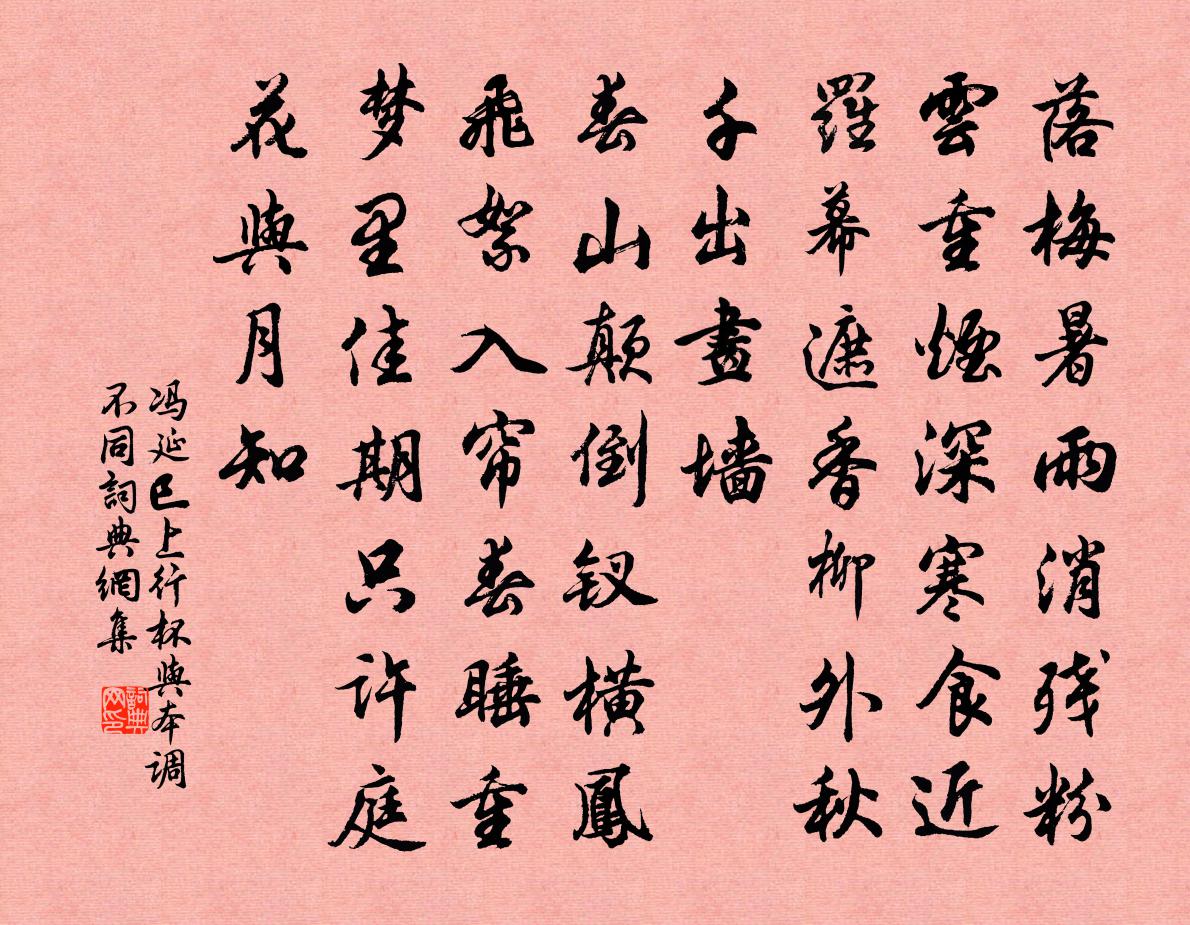 落梅暑雨消残粉
雲重煙深寒食近
羅幕遮香柳外秋
千出畫墙
春山颠倒钗横鳳
飛絮入帘春睡重
梦里佳期只许庭
花與月知
冯延巳上行杯與本调
不同詞典網集
詞典
网印